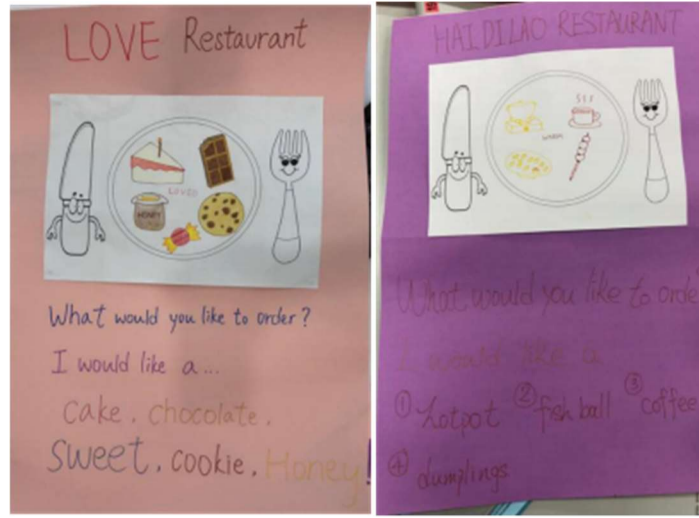 LOVE Restaurant
HONEY
LOVE
What would you like to order?
I would like a...
cake, chocolate,
sweet, cookie, Honey!
HAIDILAO RESTAURANT
What would you like to orde
I would like a
① hotpot ② fish ball ③ coffee
④ dumplings